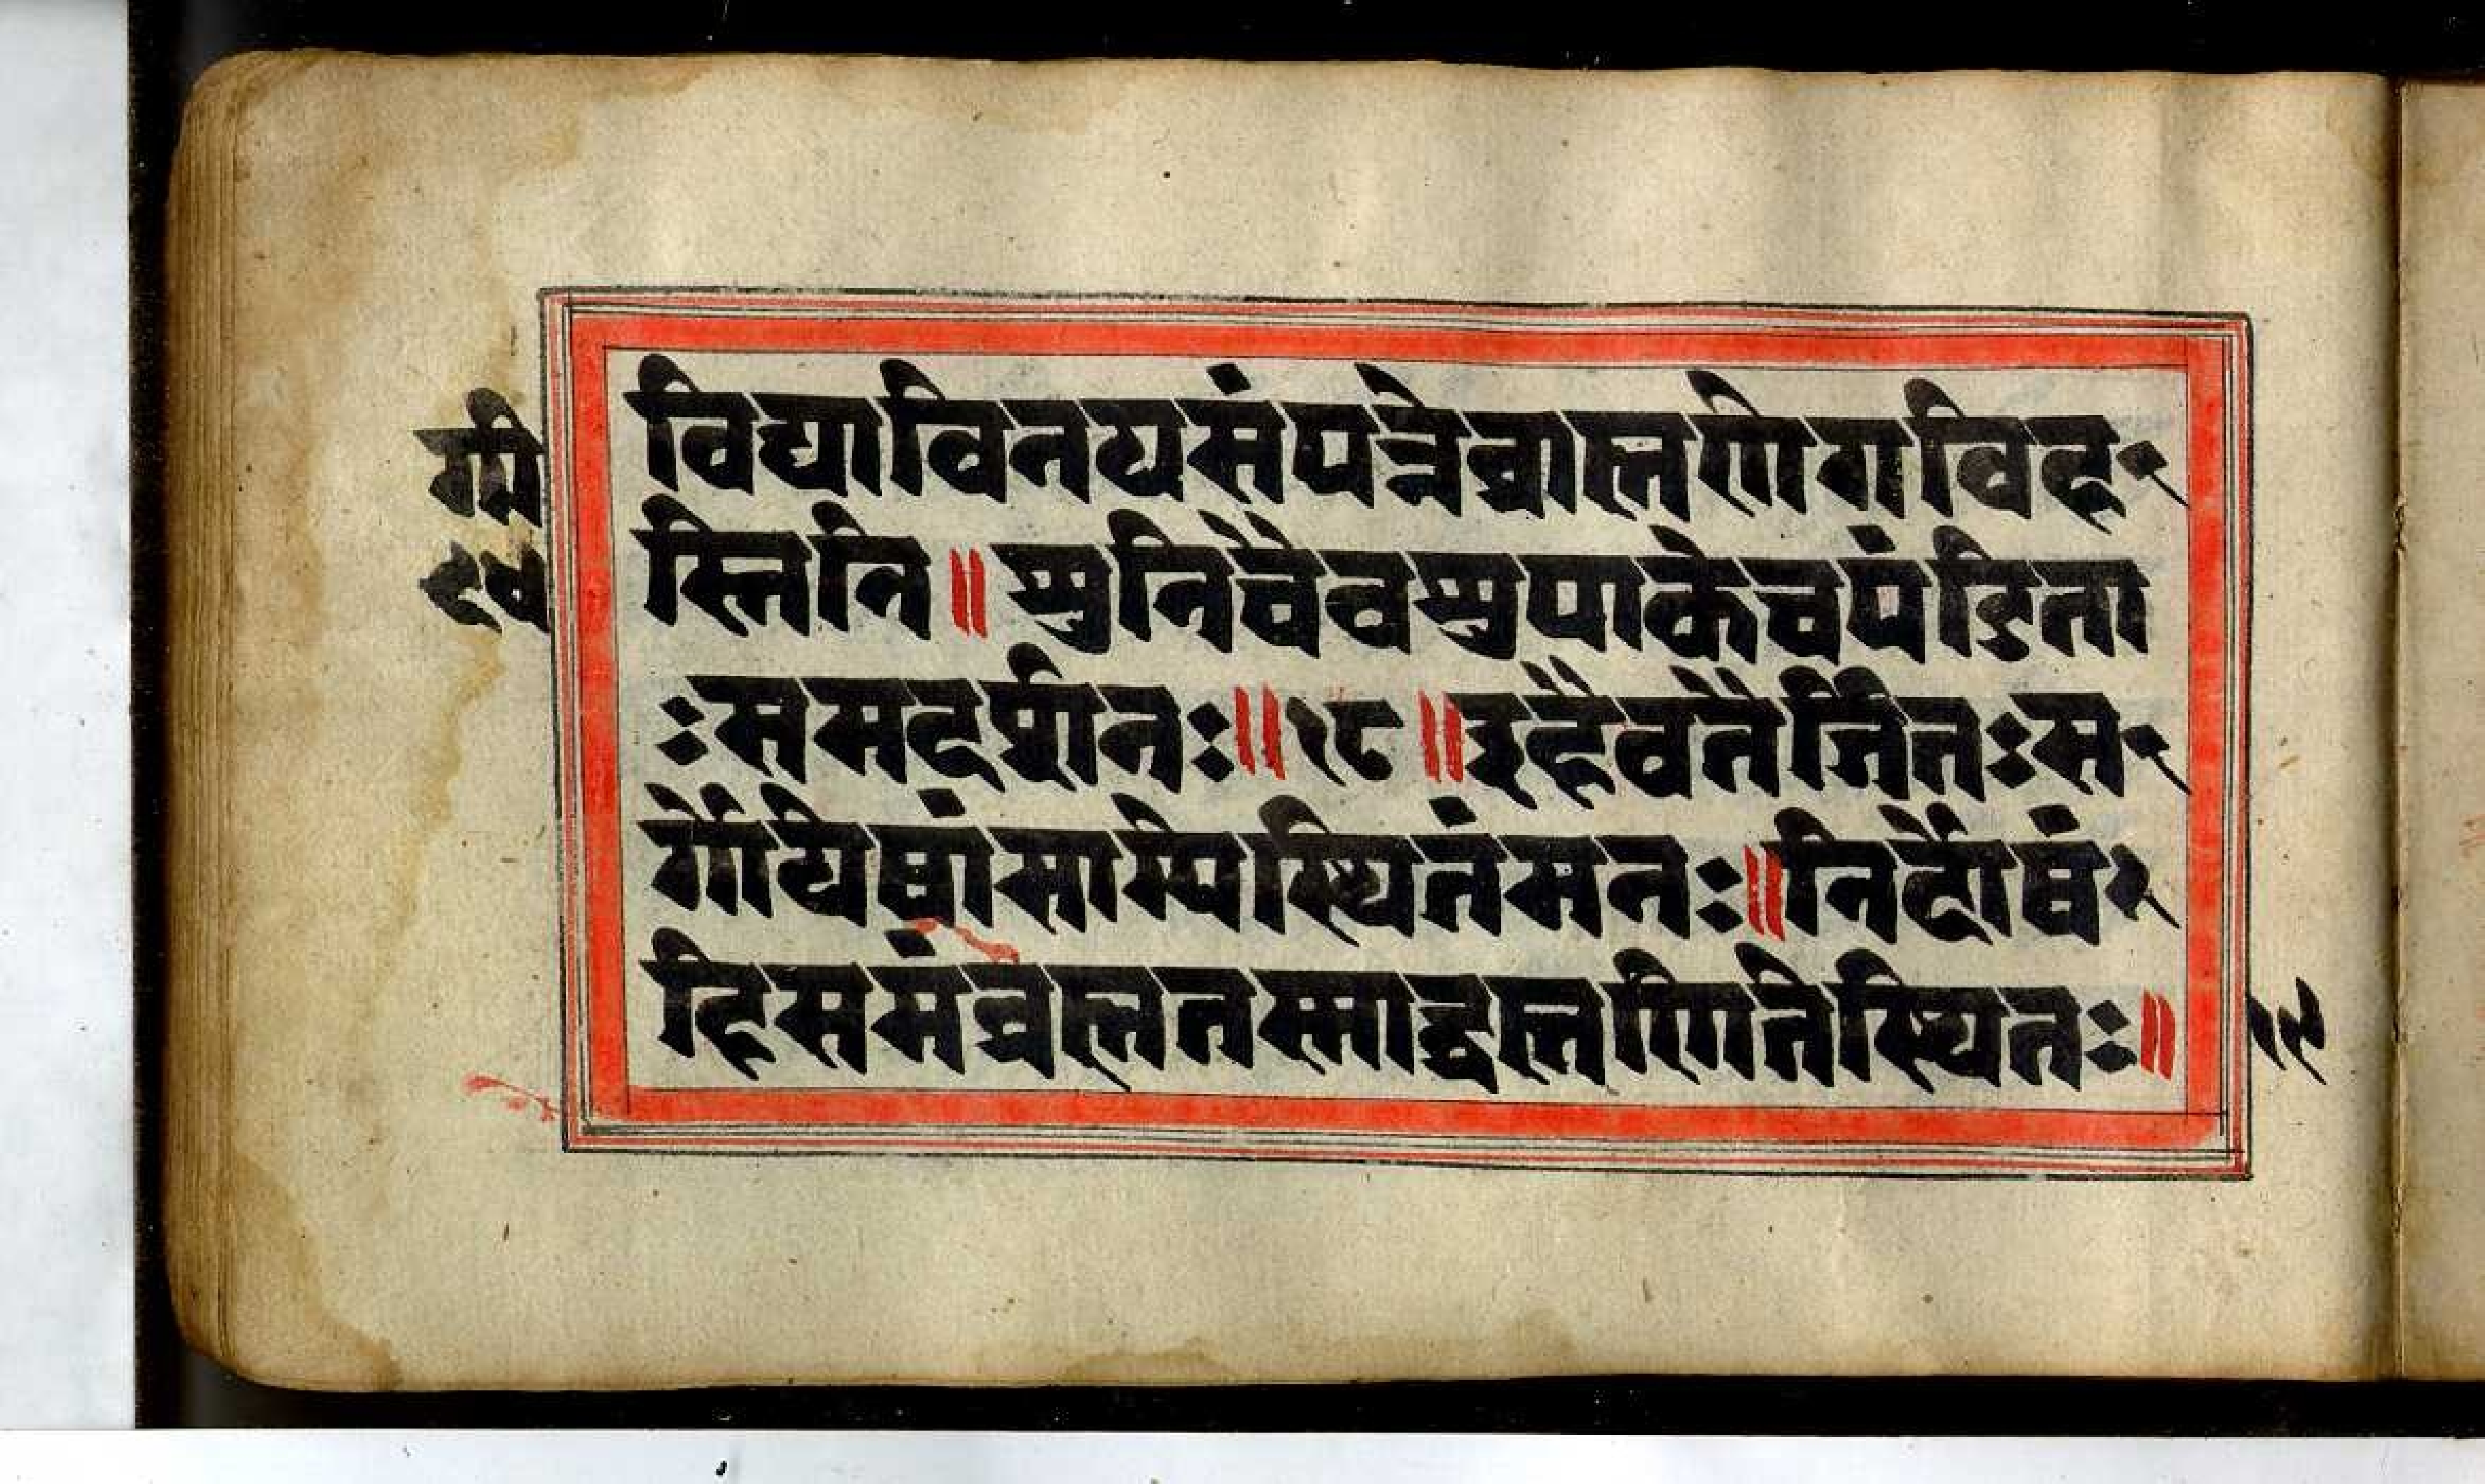 गी
विद्याविनयसंपन्नेब्राह्मणेगविह
स्तिनि॥शुनिचैवश्वपाकेचपंडिता
ःसमदर्शिनः॥१८॥इहैवतैर्जितःस
र्गोयेषांसाम्येस्थितंमनः॥निर्दोषं
हिसमंब्रह्मतस्माद्ब्रह्मणितेस्थितः॥
१९